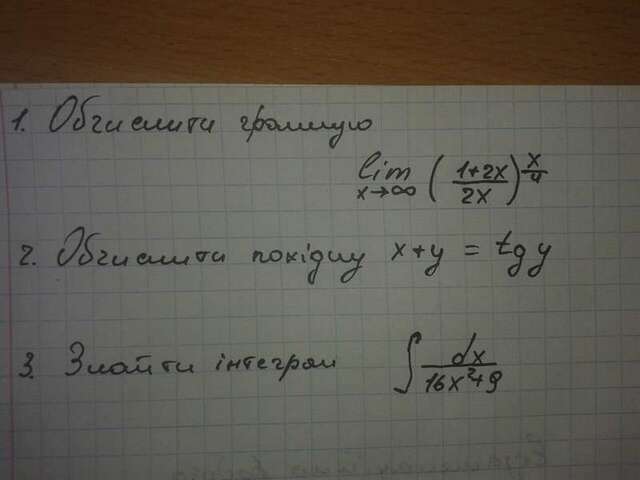 1. Обчислити границю
lim x→∞ ( 1+2x / 2x ) x/4
2. Обчислити похідну x+y = tg y
3. Знайти інтеграл ∫ dx / 16x²+9